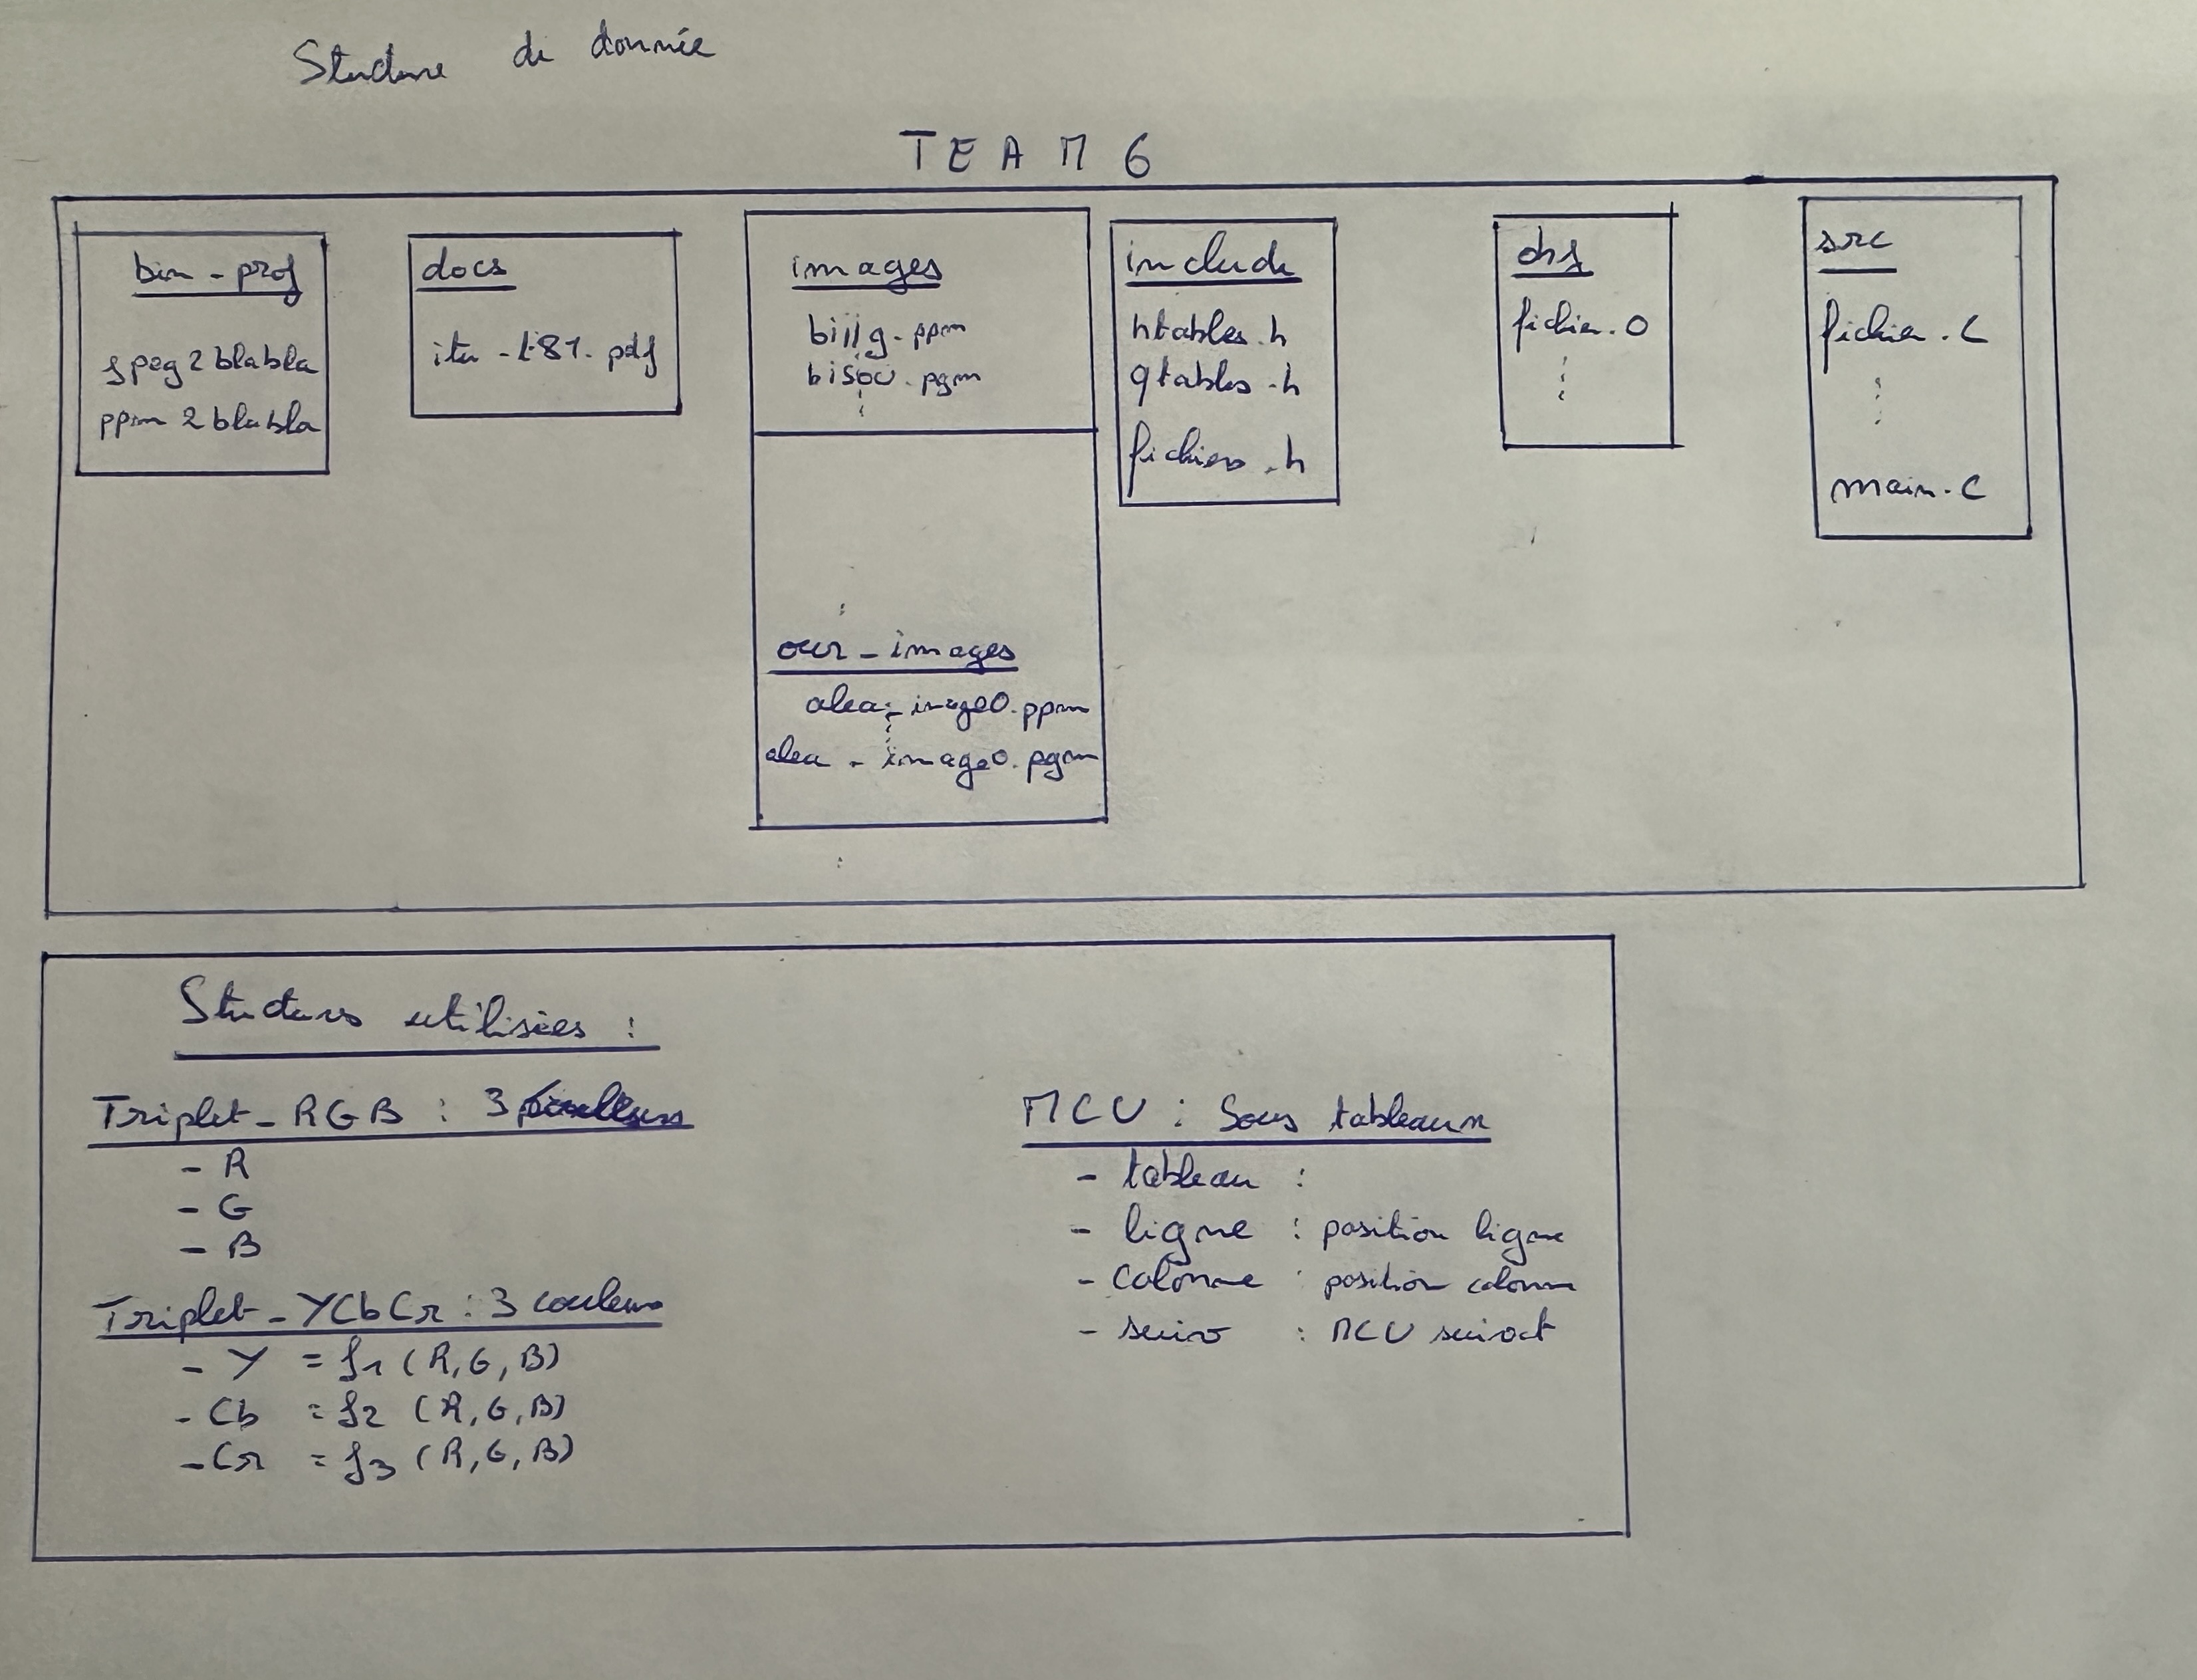 Structure de donnée
TEAM 6
bin-prof
jpeg2blabla
ppm2blabla
docs
itu-t81.pdf
images
biiig.ppm
bisou.pgm
our_images
alea_image0.ppm
alea_image0.pgm
include
htables.h
qtables.h
fichiers.h
obj
fichier.o
src
fichier.c
main.c
Structures utilisées :
Triplet_RGB : 3
- R
- G
- B
Triplet_YCbCr : 3 couleurs
- Y = f1 (R,G,B)
- Cb = f2 (R,G,B)
- Cr = f3 (R,G,B)
MCU : Sous tableaux
- tableau :
- ligne : position ligne
- colonne : position colonne
- suiv : MCU suivant